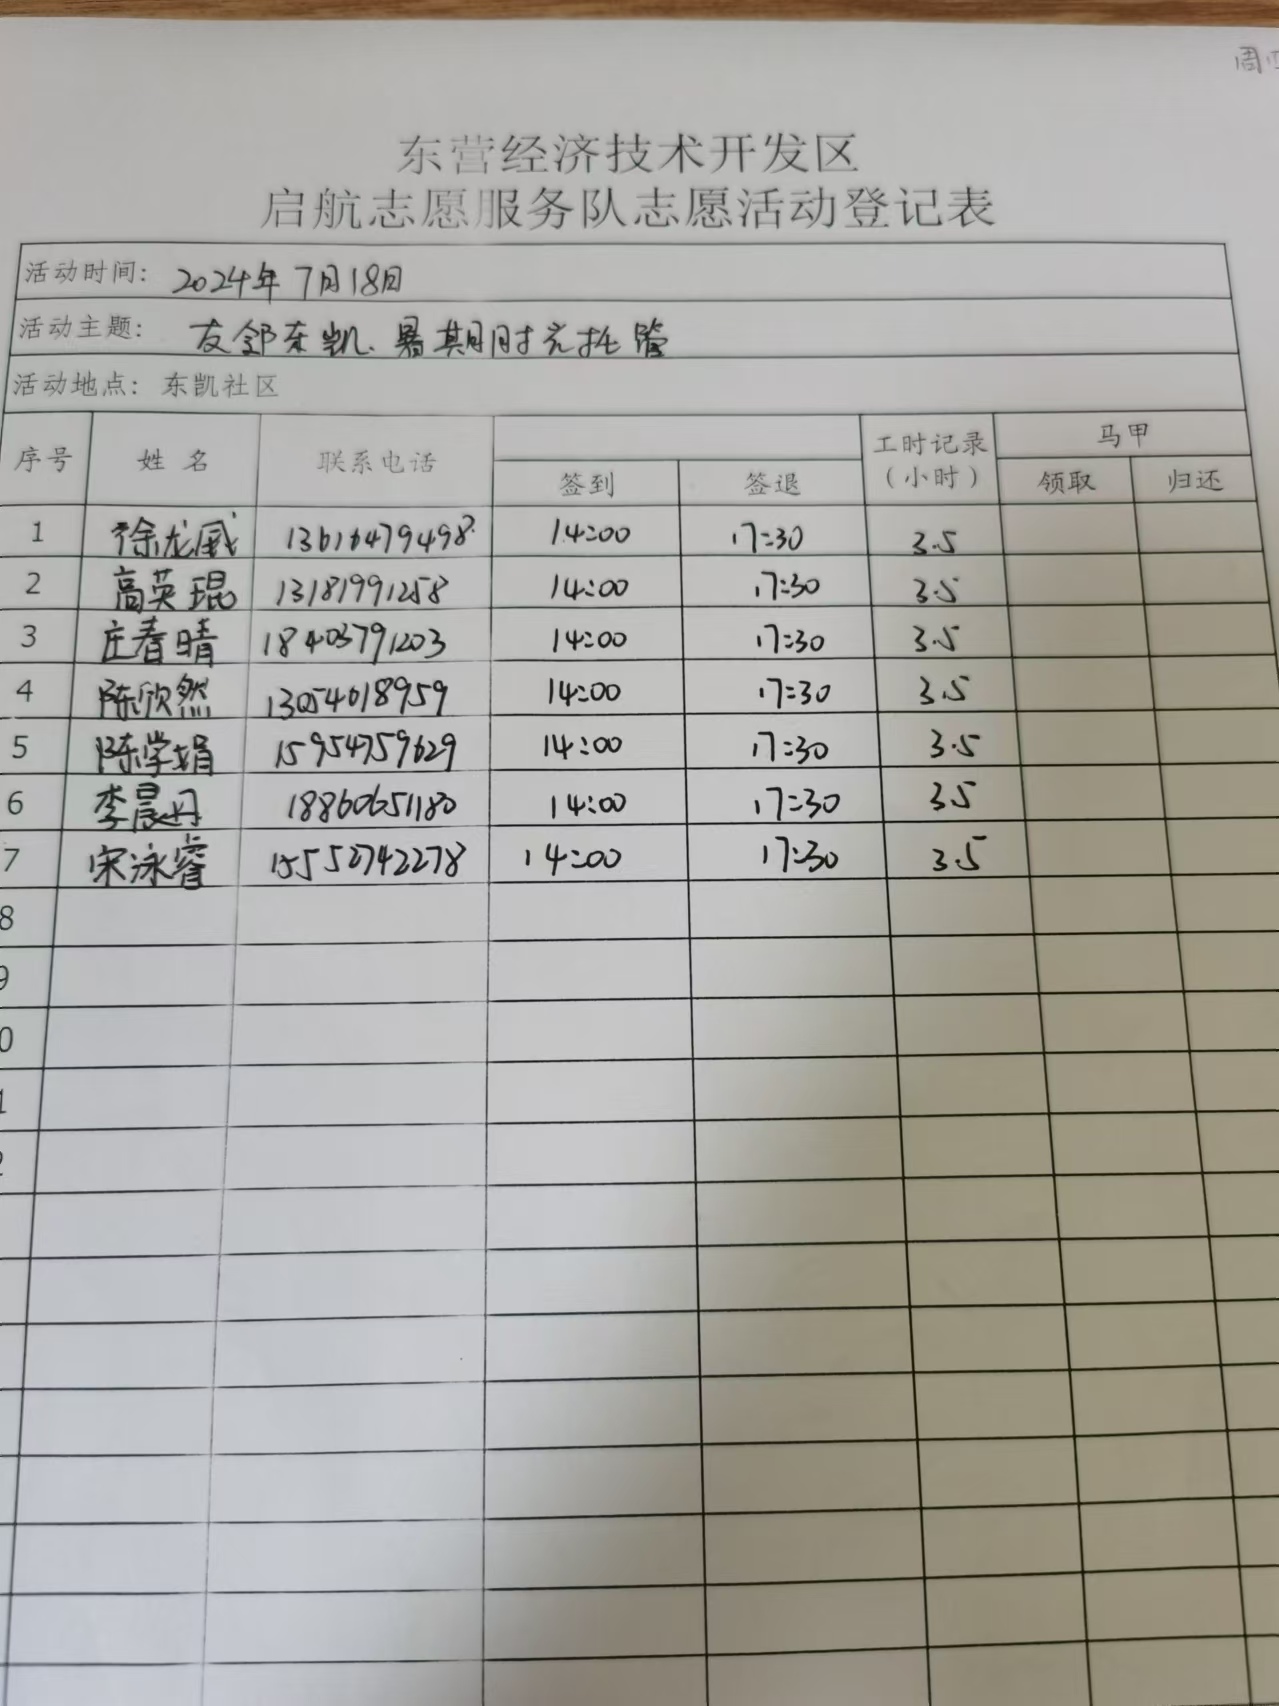 周四
东营经济技术开发区
启航志愿服务队志愿活动登记表
活动时间: 2024年7月18日
活动主题: 友邻东凯.暑期时光托管
活动地点: 东凯社区
序号 姓名 联系电话 签到 签退 工时记录(小时) 马甲 领取 归还
1 徐龙威 13616479498 14:00 17:30 3.5
2 高英琨 13181991258 14:00 17:30 3.5
3 庄春晴 18403791203 14:00 17:30 3.5
4 陈欣然 13054618959 14:00 17:30 3.5
5 陈学娟 15954759629 14:00 17:30 3.5
6 李晨丹 18860651180 14:00 17:30 3.5
7 宋泳睿 15552742278 14:00 17:30 3.5
8
9
0
1
2